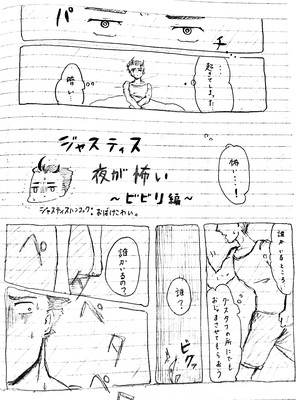 パチ
…起きてしまった…
暗い…
…怖い…！
ジャスティス
夜が怖い
～ビビリ編～
ジャスティスハンコック：おばけこわい。
誰かいるところ
グスタフの所にでも
おじゃまさせてもらおう
ビクッ
誰？
誰かいるの？
ペタ
ペタ